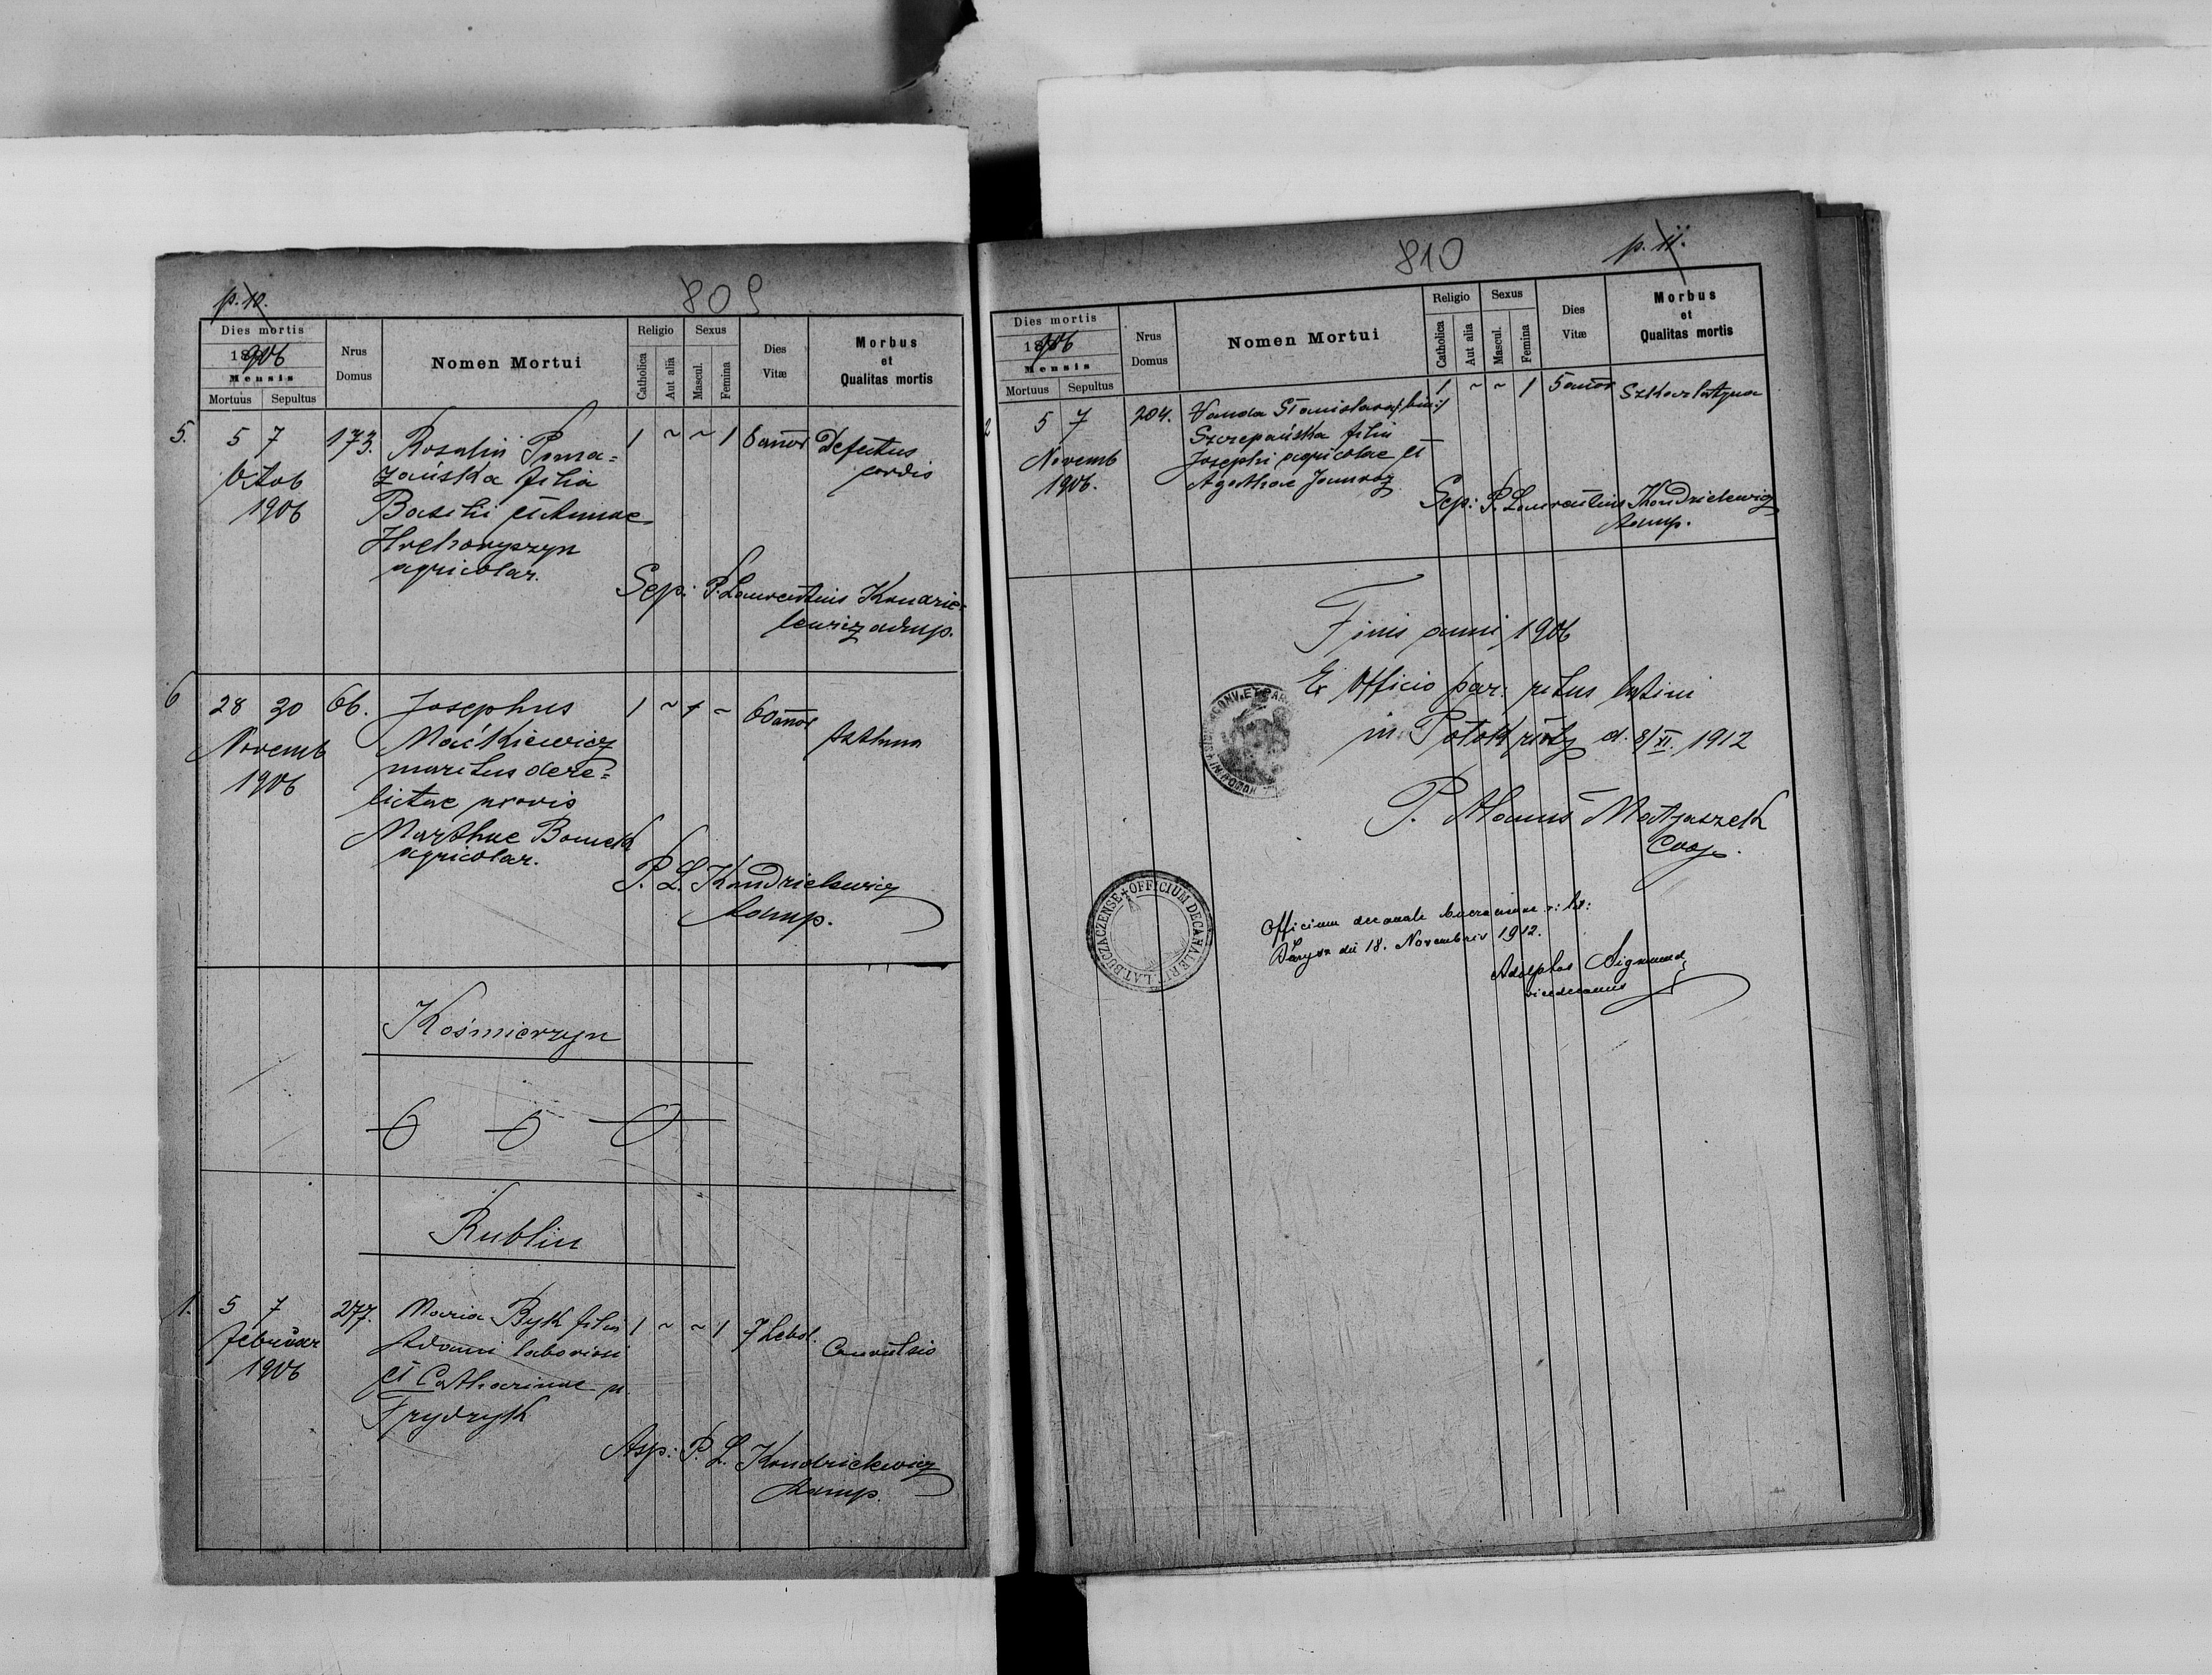 p. 10.
809
Dies mortis
1906
Mensis
Mortuus Sepultus
Nrus
Domus
Nomen Mortui
Religio
Catholica
Aut alia
Sexus
Mascul.
Femina
Dies
Vitæ
Morbus
et
Qualitas mortis
5. 5 7 173. Rosalia Poma= 1 ~ ~ 1 6 annor Defectus
Octob zańska filia cordis
1906 Basilii et Annae
Hrehoryszyn
agricolar.
Sep: P. Laurentius Kondzie=
lewicz admp.
6 28 30 66. Josephus 1 ~ 1 ~ 60 annor
Novemb Maćkiewicz Asthma
1906 maritus dere=
lictae uxoris
Marthae
agricolar.
P. L. Kondzielewicz
Admp.
Kośmierzyn
Rublin
1. 5 7 277. Maria Byk filia 1 ~ ~ 1 7 hebd.
Februar Adami laboriosi Convulsio
1906 et Catharinae n.
Frydryk
Asp: P. L. Kondzielewicz
Admp.
810
p. 11.
Dies mortis
1906
Mensis
Mortuus Sepultus
Nrus
Domus
Nomen Mortui
Religio
Catholica
Aut alia
Sexus
Mascul.
Femina
Dies
Vitæ
Morbus
et
Qualitas mortis
2 5 7 204. Vanda Stanislava /: bin :/ 1 ~ ~ 1 5 annor Szkarlatyna
Szczepańska filia
Novemb Josephi agricolae et
1906. Agathae
Sep: P. Laurentius Kondzielewicz
Admp.
Finis anni 1906
Ex Officio par: ritus latini
in Potok złoty d. 8/XI. 1912
P. Alanus Matyaszek
Coop.
OFFICIUM DECANALE RIT. LAT. BUCZACZENSE
Officium decanale Buczacense r: lat:
die 18. Novembris 1912.
Adolphus Sigmund
vicedecanus